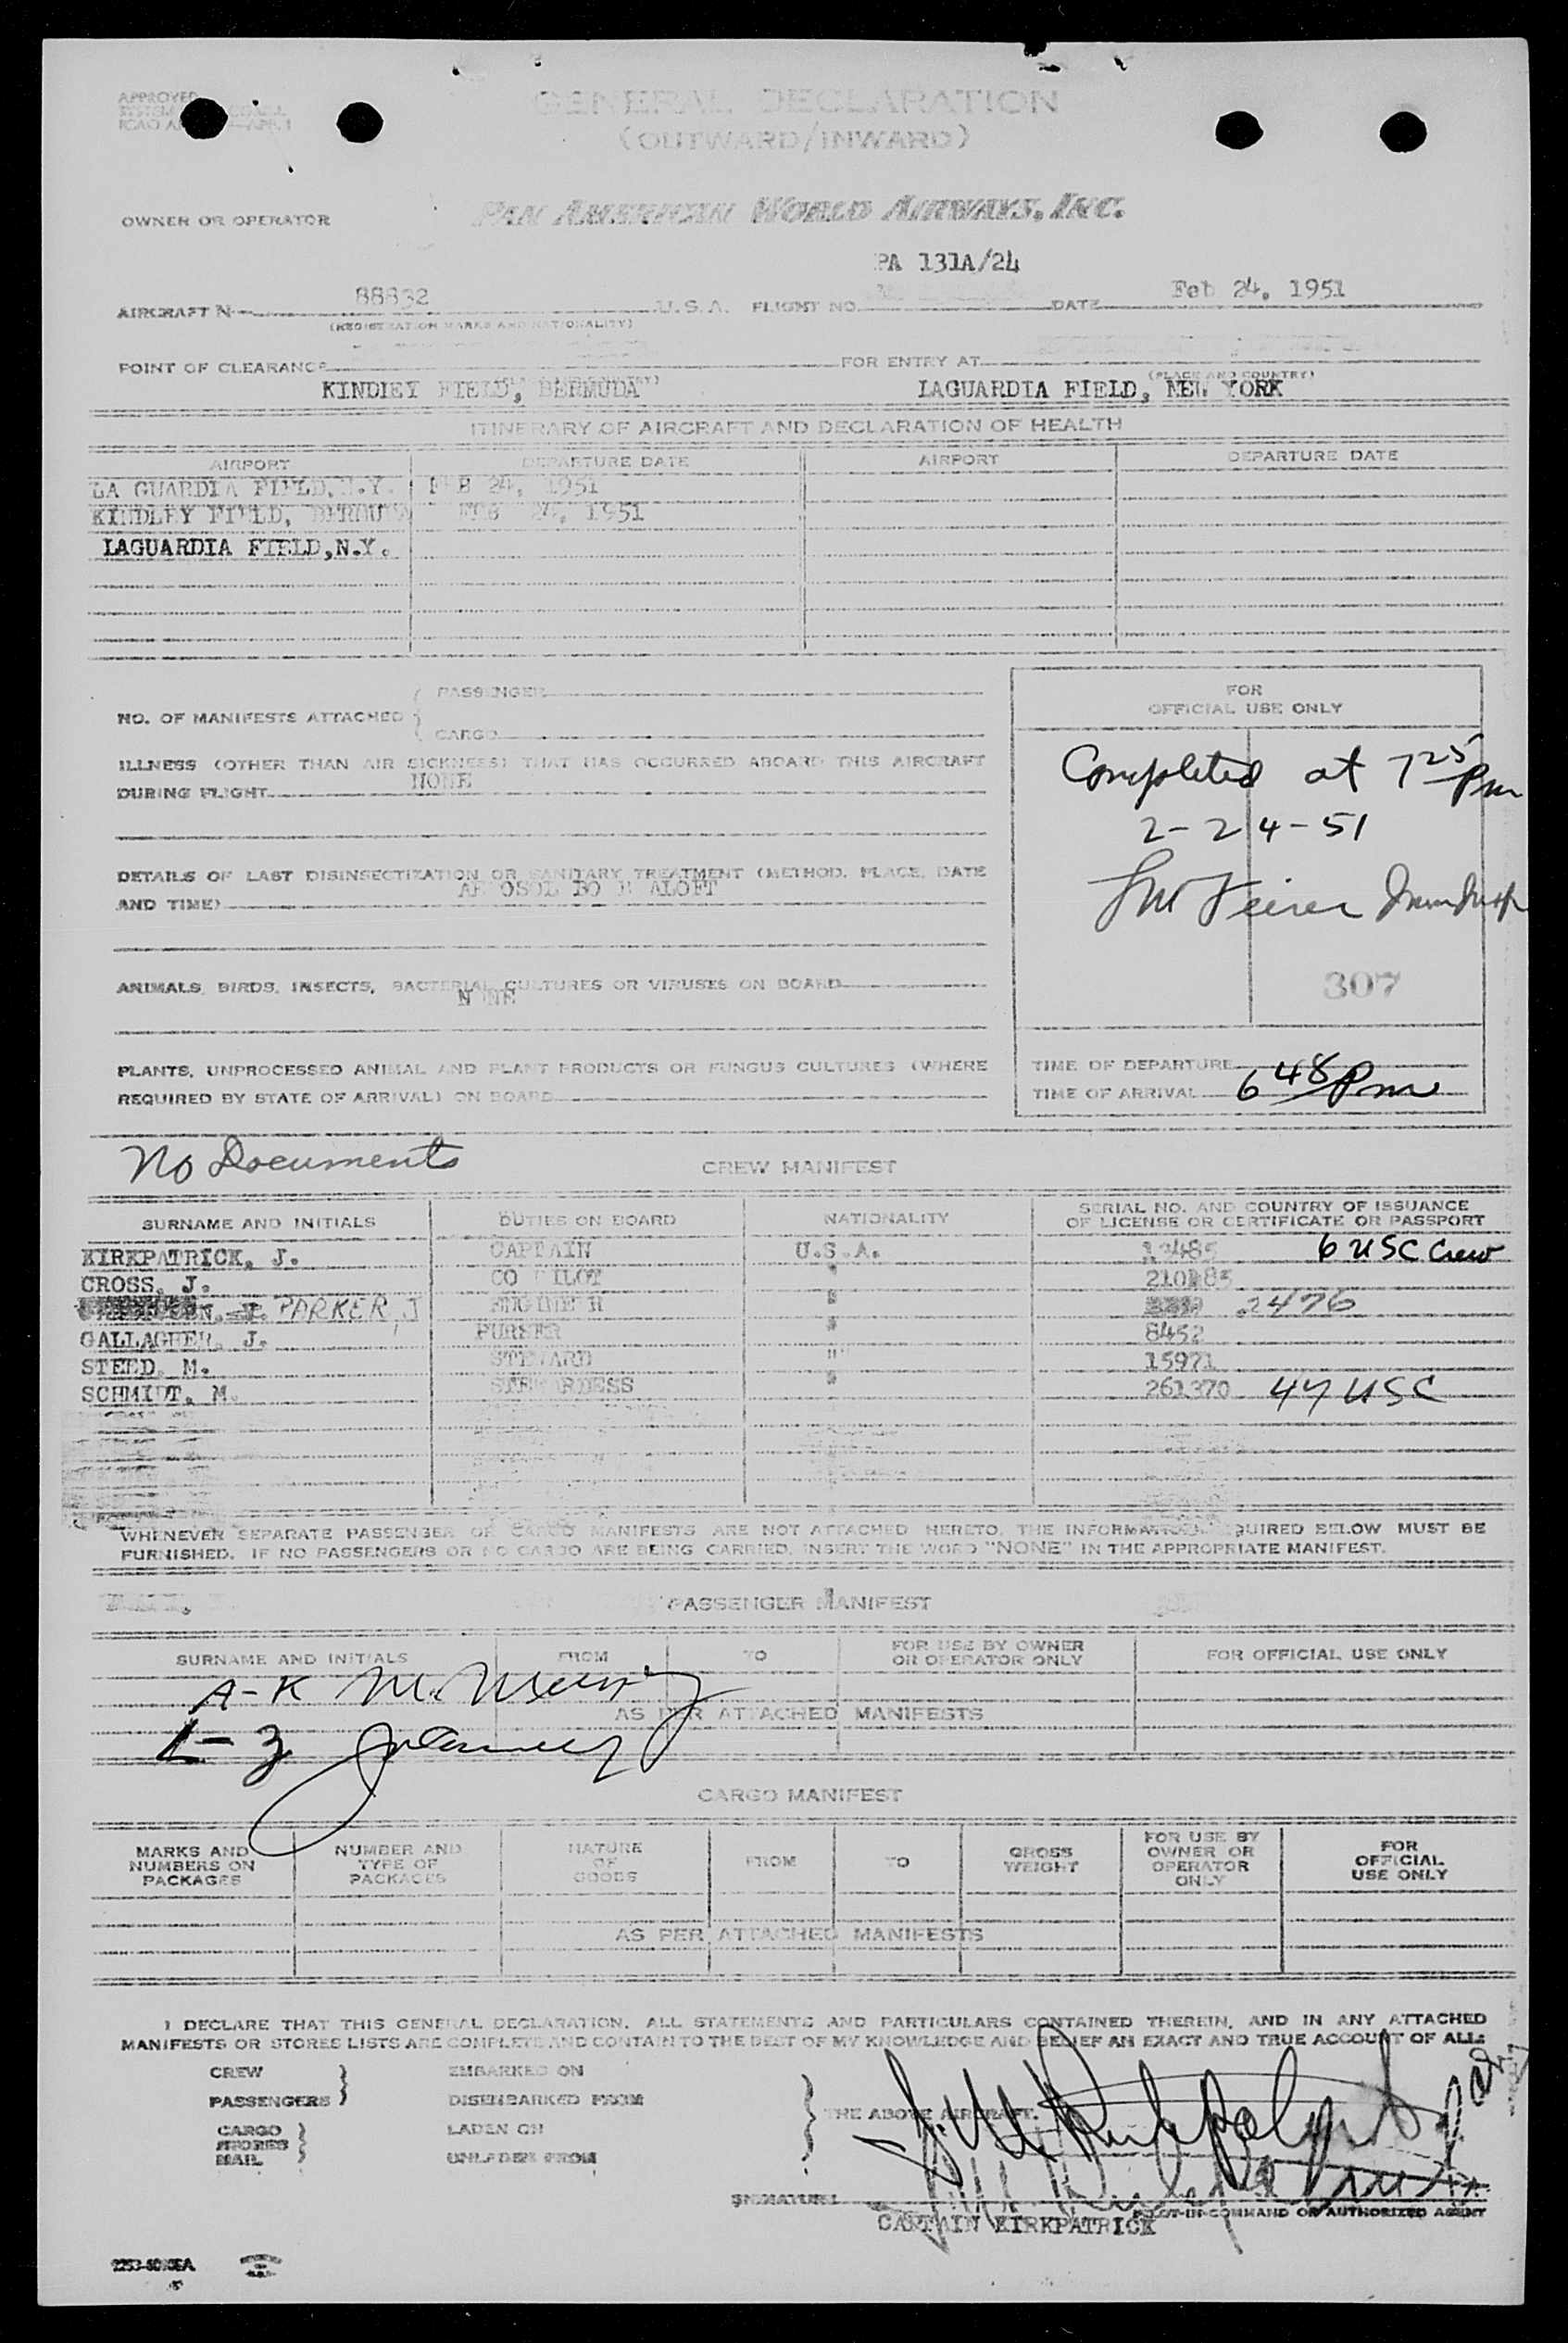 APPROVED
GENERAL DECLARATION
(OUTWARD/INWARD)
OWNER OR OPERATOR PAN AMERICAN WORLD AIRWAYS, INC.
PA 131A/24
AIRCRAFT N 88832 U.S.A. FLIGHT NO. DATE Feb 24, 1951
(REGISTRATION MARKS AND NATIONALITY)
POINT OF CLEARANCE FOR ENTRY AT
(PLACE AND COUNTRY)
KINDLEY FIELD, BERMUDA LAGUARDIA FIELD, NEW YORK
ITINERARY OF AIRCRAFT AND DECLARATION OF HEALTH
AIRPORT DEPARTURE DATE AIRPORT DEPARTURE DATE
LA GUARDIA FIELD, N.Y. FEB 24, 1951
KINDLEY FIELD, BERMUDA FEB 24, 1951
LAGUARDIA FIELD,N.Y.
NO. OF MANIFESTS ATTACHED
PASSENGER
CARGO
ILLNESS (OTHER THAN AIR SICKNESS) THAT HAS OCCURRED ABOARD THIS AIRCRAFT
DURING FLIGHT NONE
DETAILS OF LAST DISINSECTIZATION OR SANITARY TREATMENT (METHOD, PLACE, DATE
AND TIME) AEROSOL BOMB ALOFT
ANIMALS, BIRDS, INSECTS, BACTERIAL CULTURES OR VIRUSES ON BOARD
NONE
PLANTS, UNPROCESSED ANIMAL AND PLANT PRODUCTS OR FUNGUS CULTURES (WHERE
REQUIRED BY STATE OF ARRIVAL) ON BOARD
FOR
OFFICIAL USE ONLY
Completed at 7 25 Pm
2-24-51
307
TIME OF DEPARTURE
TIME OF ARRIVAL 6 48 Pm
No Documents
CREW MANIFEST
SURNAME AND INITIALS DUTIES ON BOARD NATIONALITY SERIAL NO. AND COUNTRY OF ISSUANCE
OF LICENSE OR CERTIFICATE OR PASSPORT
KIRKPATRICK, J. CAPTAIN U.S.A. 6 USC Crew
CROSS, J. CO PILOT "
PARKER, J ENGINEER " 2476
GALLAGHER, J. PURSER " 8452
STEED, M. STEWARD " 15971
SCHMIDT, M. STEWARDESS " 261370 47 USC
WHENEVER SEPARATE PASSENGER OR CARGO MANIFESTS ARE NOT ATTACHED HERETO, THE INFORMATION REQUIRED BELOW MUST BE
FURNISHED. IF NO PASSENGERS OR NO CARGO ARE BEING CARRIED, INSERT THE WORD "NONE" IN THE APPROPRIATE MANIFEST.
PASSENGER MANIFEST
SURNAME AND INITIALS FROM TO FOR USE BY OWNER
OR OPERATOR ONLY FOR OFFICIAL USE ONLY
A-K
AS PER ATTACHED MANIFESTS
L-Z
CARGO MANIFEST
MARKS AND
NUMBERS ON
PACKAGES
NUMBER AND
TYPE OF
PACKAGES
NATURE
OF
GOODS
FROM
TO
GROSS
WEIGHT
FOR USE BY
OWNER OR
OPERATOR
ONLY
FOR
OFFICIAL
USE ONLY
AS PER ATTACHED MANIFESTS
I DECLARE THAT THIS GENERAL DECLARATION, ALL STATEMENTS AND PARTICULARS CONTAINED THEREIN, AND IN ANY ATTACHED
MANIFESTS OR STORES LISTS ARE COMPLETE AND CONTAIN TO THE BEST OF MY KNOWLEDGE AND BELIEF AN EXACT AND TRUE ACCOUNT OF ALL:
CREW EMBARKED ON
PASSENGERS DISEMBARKED FROM
THE ABOVE AIRCRAFT.
CARGO LADEN ON
STORES
MAIL UNLADEN FROM
SIGNATURE
PILOT-IN-COMMAND OR AUTHORIZED AGENT
CAPTAIN KIRKPATRICK